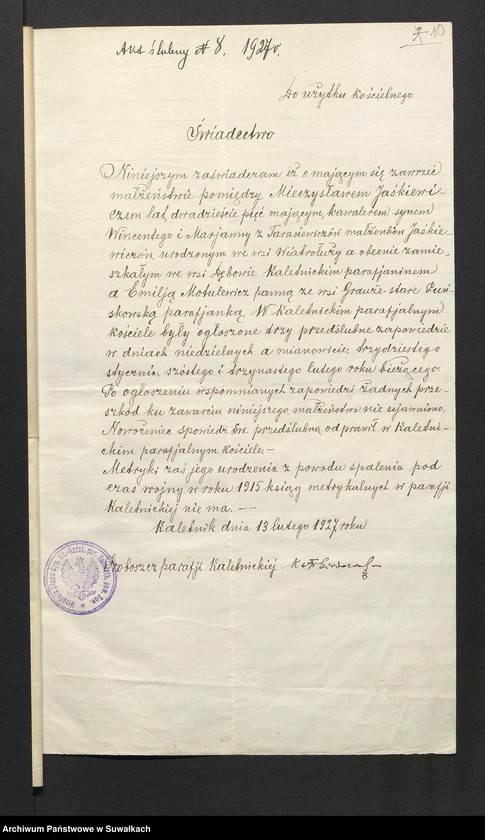 Akt ślubny № 8. 1927 r.
10
Do użytku kościelnego
Świadectwo
Niniejszym zaświadczam iż o mającym się zawrzeć
małżeństwie pomiędzy Mieczysławem Jaśkiewi-
czem lat dwadzieście pięć mającym, kawalerem, synem
Wincentego i Marjanny z Tarasiewiczów małżonków Jaśkie-
wiczów, urodzonym we wsi Wiatrołuży a obecnie zamie-
szkałym we wsi Dębowie Kaletnickim parafjaninem
a Emilją Motulewicz panną ze wsi Grauże-stare Puń-
skowską parafjanką. W Kaletnickim parafjalnym
kościele były ogłoszone trzy przedślubne zapowiedzie
w dniach niedzielnych a mianowicie: trzydziestego
stycznia, szóstego i trzynastego lutego roku bieżącego.
Po ogłoszeniu wspomnianych zapowiedzi żadnych prze-
szkód ku zawarciu niniejszego małżeństwa nie ujawniono.
Nowożeniec spowiedź św. przedślubną odprawił w Kaletnic-
kim parafjalnym kościele.-
Metryki zaś jego urodzenia z powodu spalenia pod
czas wojny w roku 1915 ksiąg metrykalnych w parafji
Kaletnickiej nie ma. -
Kaletnik dnia 13 lutego 1927 roku
Proboszcz parafji Kaletnickiej
Archiwum Państwowe w Suwałkach